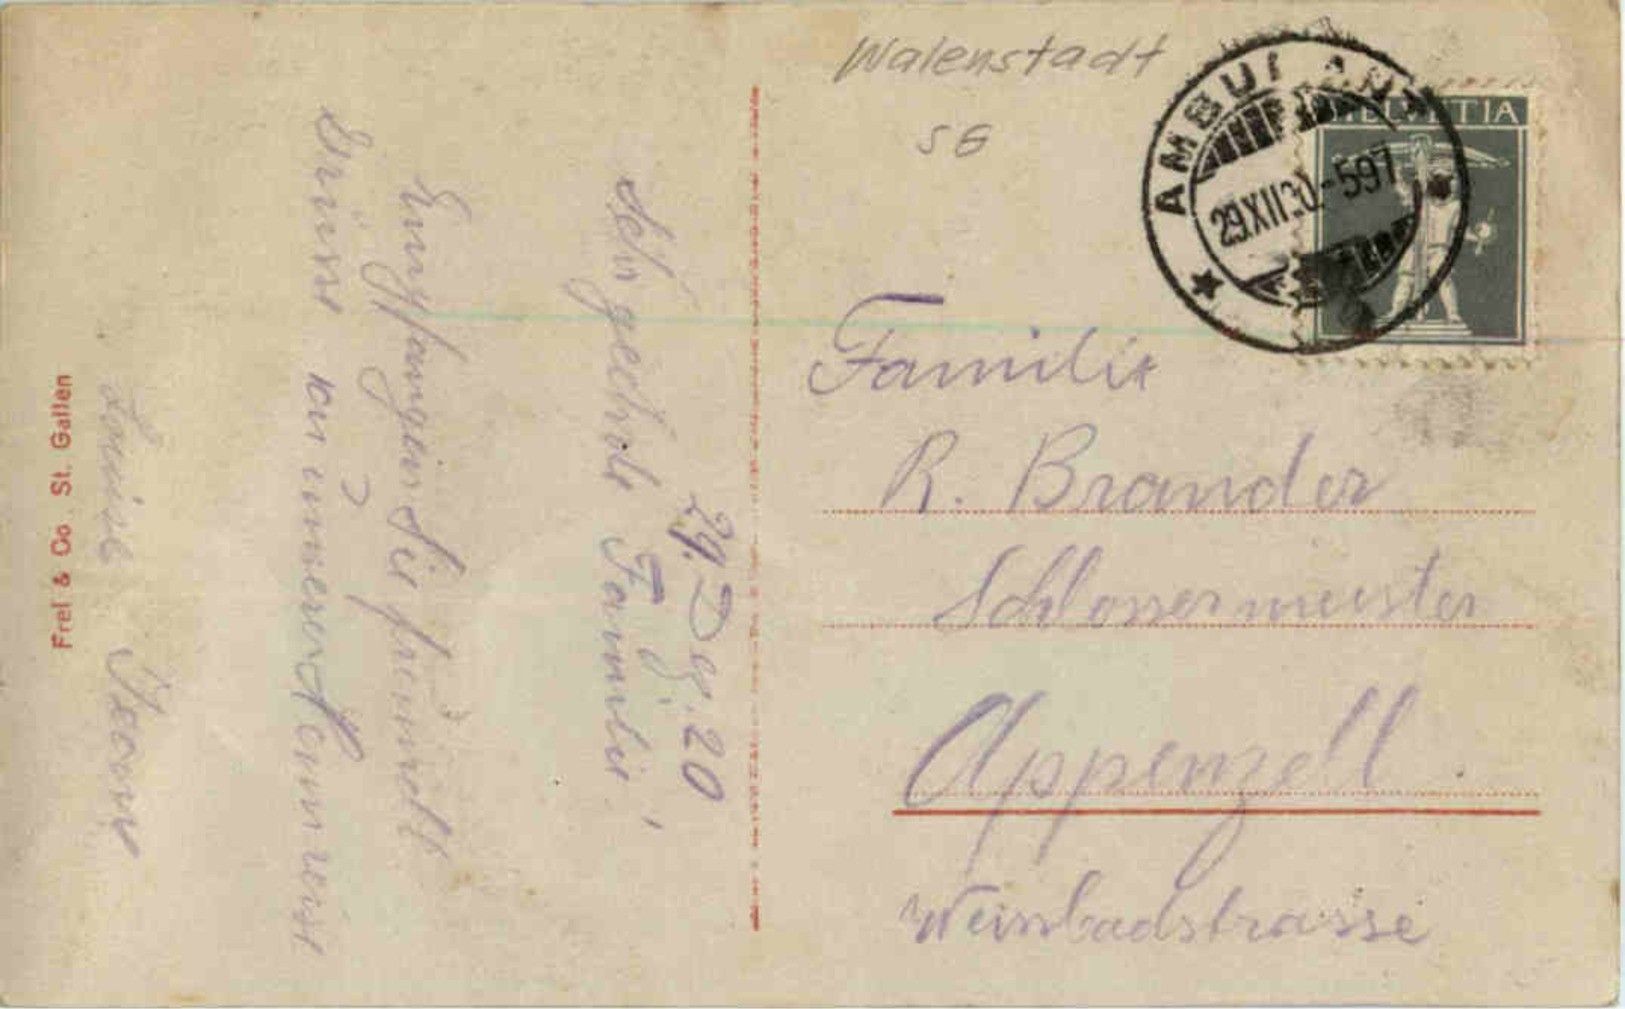 Walenstadt
SG
AMBULANT
29.XII.20.-597
HELVETIA
Familie
R. Brander
Schlossermeister
Appenzell
Weissbadstrasse
29. Dez. 20
Sehr geehrte Familie,
Empfangen Sie freundl.
Grüsse von unserer Heimreise
Louise
Frei & Co. St. Gallen